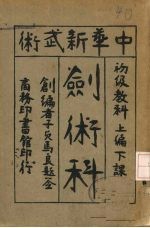 中華新武術
初級教科 上編下課
劍術科
創編者 馬良
商務印書館印行